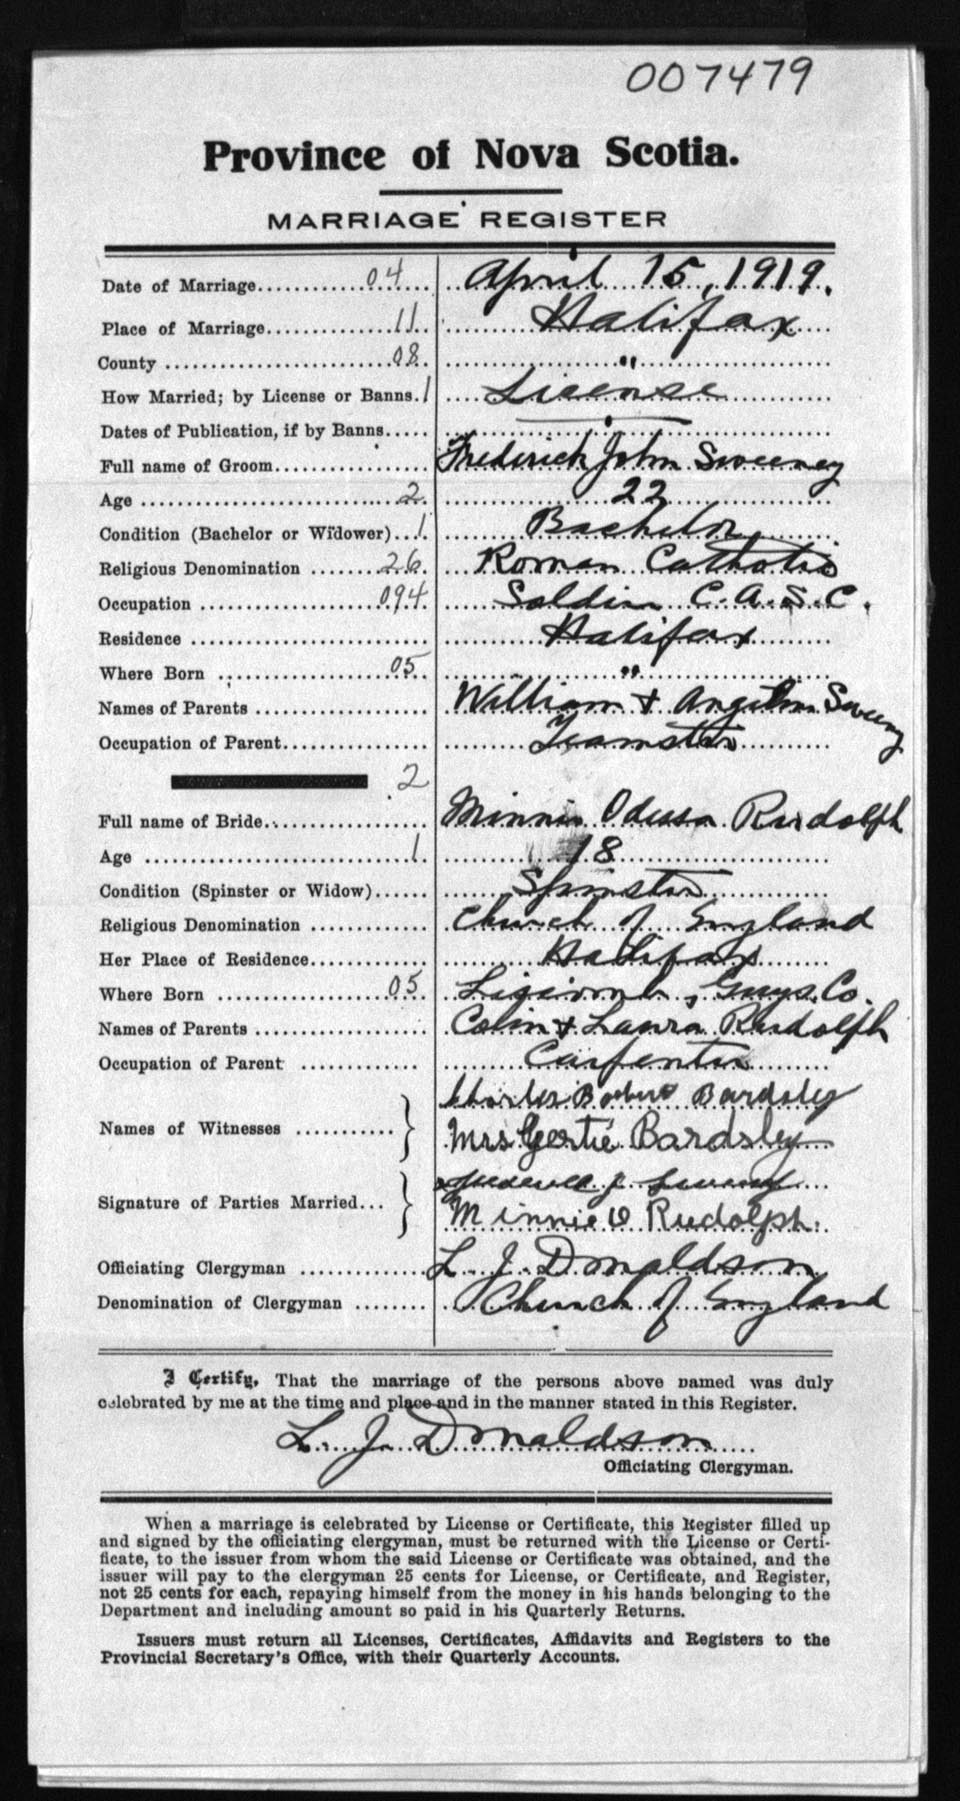 007479
Province of Nova Scotia.
MARRIAGE REGISTER
Date of Marriage............04.... April 15, 1919.
Place of Marriage..............11.. Halifax
County ........................08. "
How Married; by License or Banns.1 License
Dates of Publication, if by Banns.....
Full name of Groom................ Frederick John Sweeney
Age ..........................2. 22
Condition (Bachelor or Widower)...1. Bachelor
Religious Denomination .......26. Roman Catholic
Occupation ..................094. Soldier C.A.S.C.
Residence ......................... Halifax
Where Born ..................05. "
Names of Parents .................. William & Angelina Sweeny
Occupation of Parent............... Teamster
2
Full name of Bride................. Minnie Odessa Rudolph
Age ............................1. 18
Condition (Spinster or Widow)...... Spinster
Religious Denomination ............ Church of England
Her Place of Residence............. Halifax
Where Born ..................05.. , Guys. Co.
Names of Parents .................. Colin & Laura Rudolph
Occupation of Parent ............ Carpenter
Names of Witnesses ........... } Charles Robert Bardsley
Mrs Gertie Bardsley
Signature of Parties Married... } Frederick J. Sweeney
Minnie O Rudolph.
Officiating Clergyman ............. L. J. Donaldson
Denomination of Clergyman ........ Church of England
I Certify, That the marriage of the persons above named was duly
celebrated by me at the time and place and in the manner stated in this Register.
L. J. Donaldson
Officiating Clergyman.
When a marriage is celebrated by License or Certificate, this Register filled up
and signed by the officiating clergyman, must be returned with the License or Certi-
ficate, to the issuer from whom the said License or Certificate was obtained, and the
issuer will pay to the clergyman 25 cents for License, or Certificate, and Register,
not 25 cents for each, repaying himself from the money in his hands belonging to the
Department and including amount so paid in his Quarterly Returns.
Issuers must return all Licenses, Certificates, Affidavits and Registers to the
Provincial Secretary's Office, with their Quarterly Accounts.